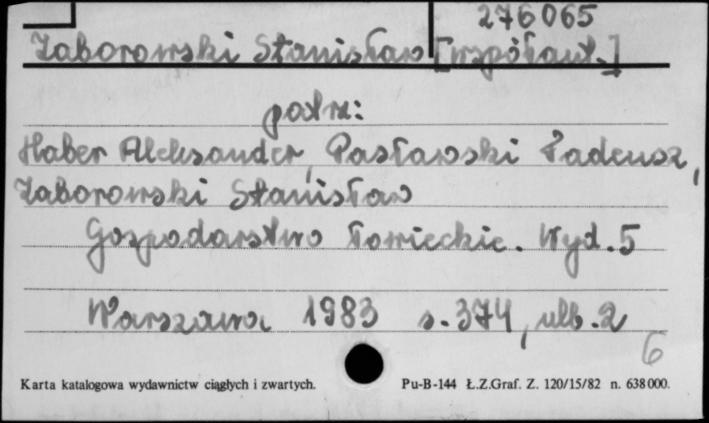 276065
Zaborowski Stanisław [współaut.]
patrz:
Haber Aleksander, Pasławski Tadeusz,
Zaborowski Stanisław
Gospodarstwo łowieckie. Wyd. 5
Warszawa 1983 s. 374, ulb. 2
6
Karta katalogowa wydawnictw ciągłych i zwartych. Pu-B-144 Ł.Z.Graf. Z. 120/15/82 n. 638000.